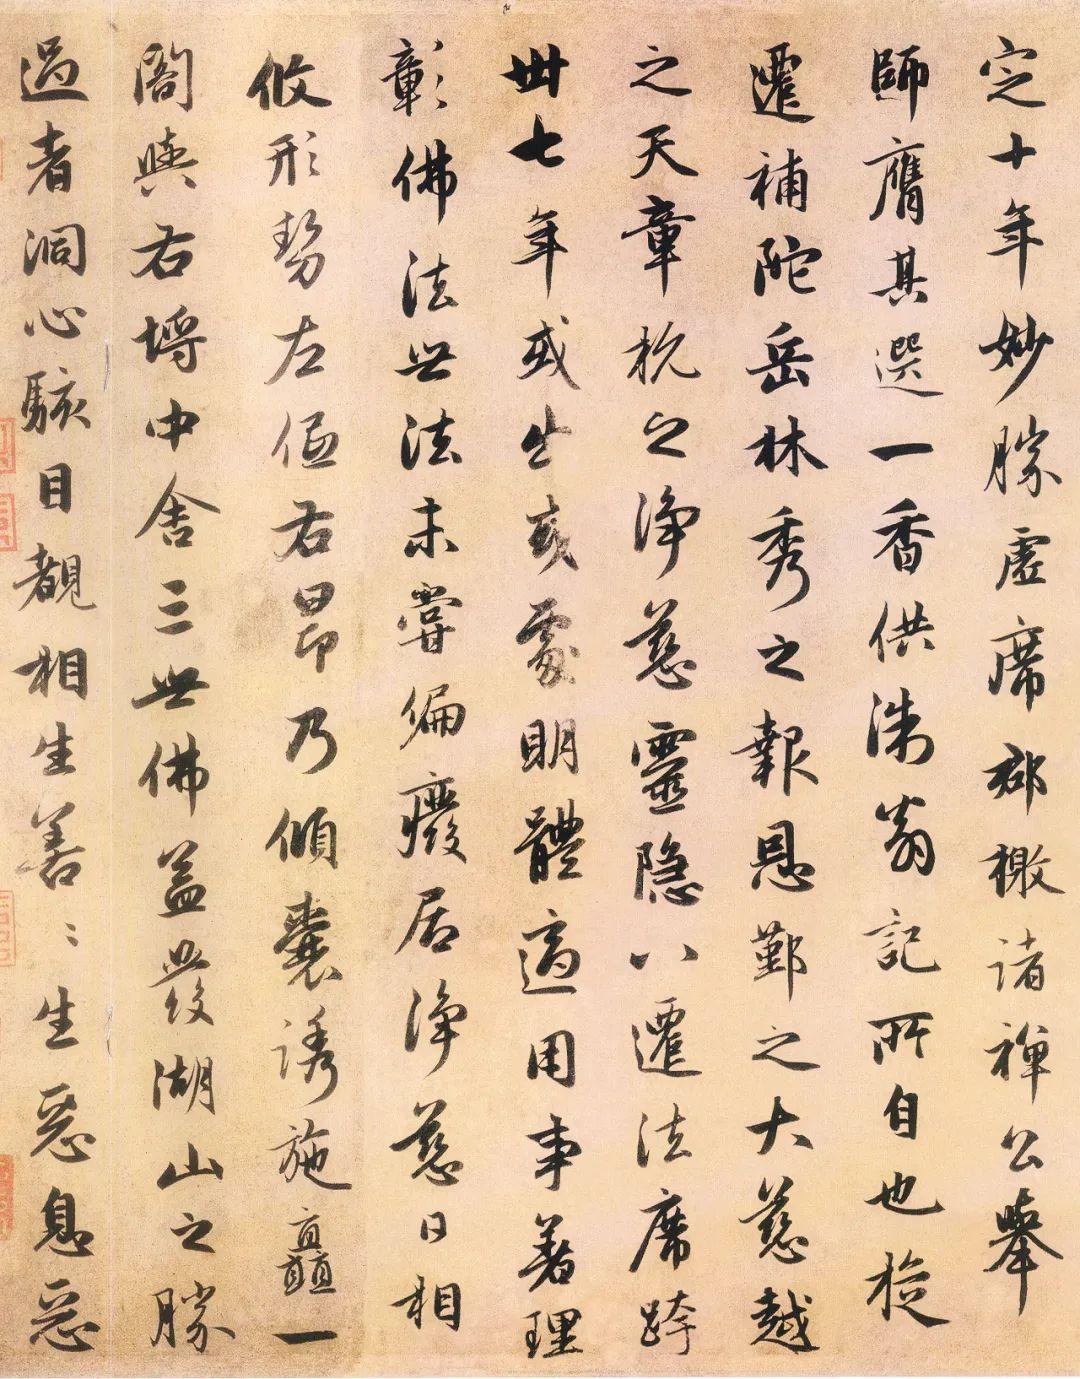 定十年妙勝虛席郡檄諸禪公舉
師膺其選一香供洙翁記所自也旋
遷補陀岳林秀之報恩鄞之大慈越
之天章杭之淨慈靈隱八遷法席跨
丗七年或出或處明體適用事著理
彰佛法世法未嘗偏廢居淨慈日相
攸形勢左低右昂乃傾囊誘施矗一
閣與右埒中舍三世佛益發湖山之勝
過者洞心駭目覩相生善〻生惡息惡